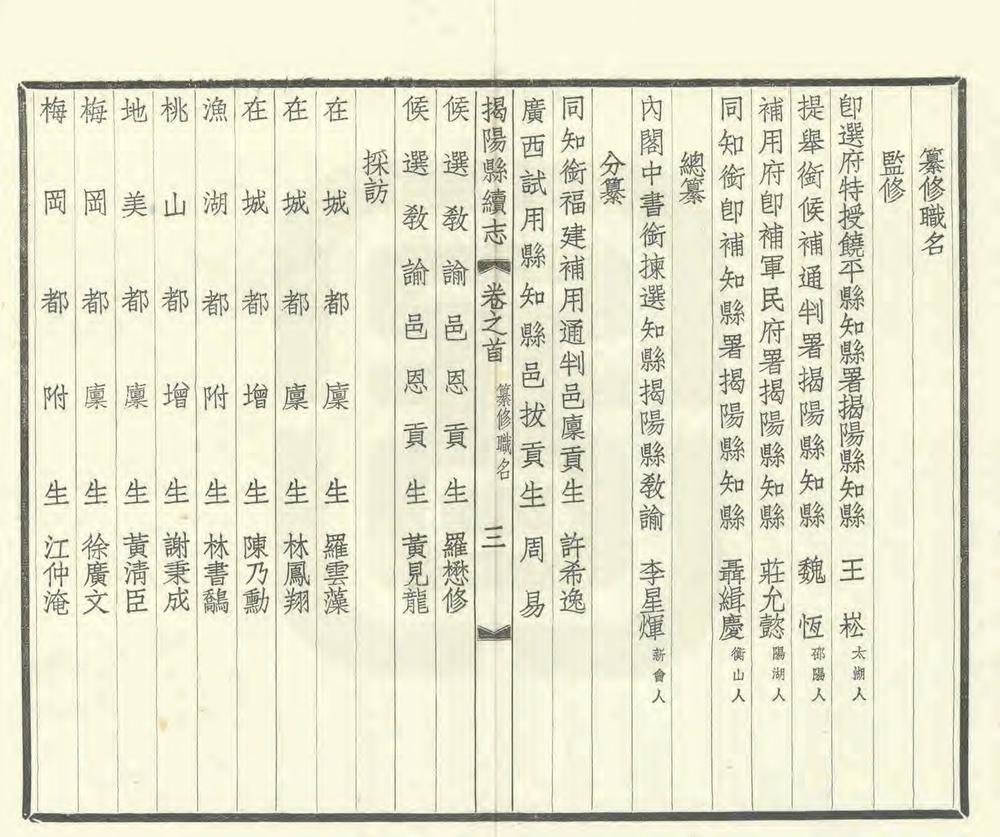 纂修職名
監修
卽選府特授饒平縣知縣署揭陽縣知縣 王 崧 太湖人
提舉銜候補通判署揭陽縣知縣 魏 恆 邵陽人
補用府卽補軍民府署揭陽縣知縣 莊允懿 陽湖人
同知銜卽補知縣署揭陽縣知縣 聶緝慶 衡山人
總纂
內閣中書銜揀選知縣揭陽縣教諭 李星煇 新會人
分纂
同知銜福建補用通判邑廩貢生 許希逸
廣西試用縣知縣邑拔貢生 周 易
揭陽縣續志 卷之首 纂修職名 三
候選教諭邑恩貢生 羅懋修
候選教諭邑恩貢生 黃見龍
採訪
在城都廩生 羅雲藻
在城都廩生 林鳳翔
在城都增生 陳乃勳
漁湖都附生 林書鷸
桃山都增生 謝秉成
地美都廩生 黃清臣
梅岡都廩生 徐廣文
梅岡都附生 江仲淹